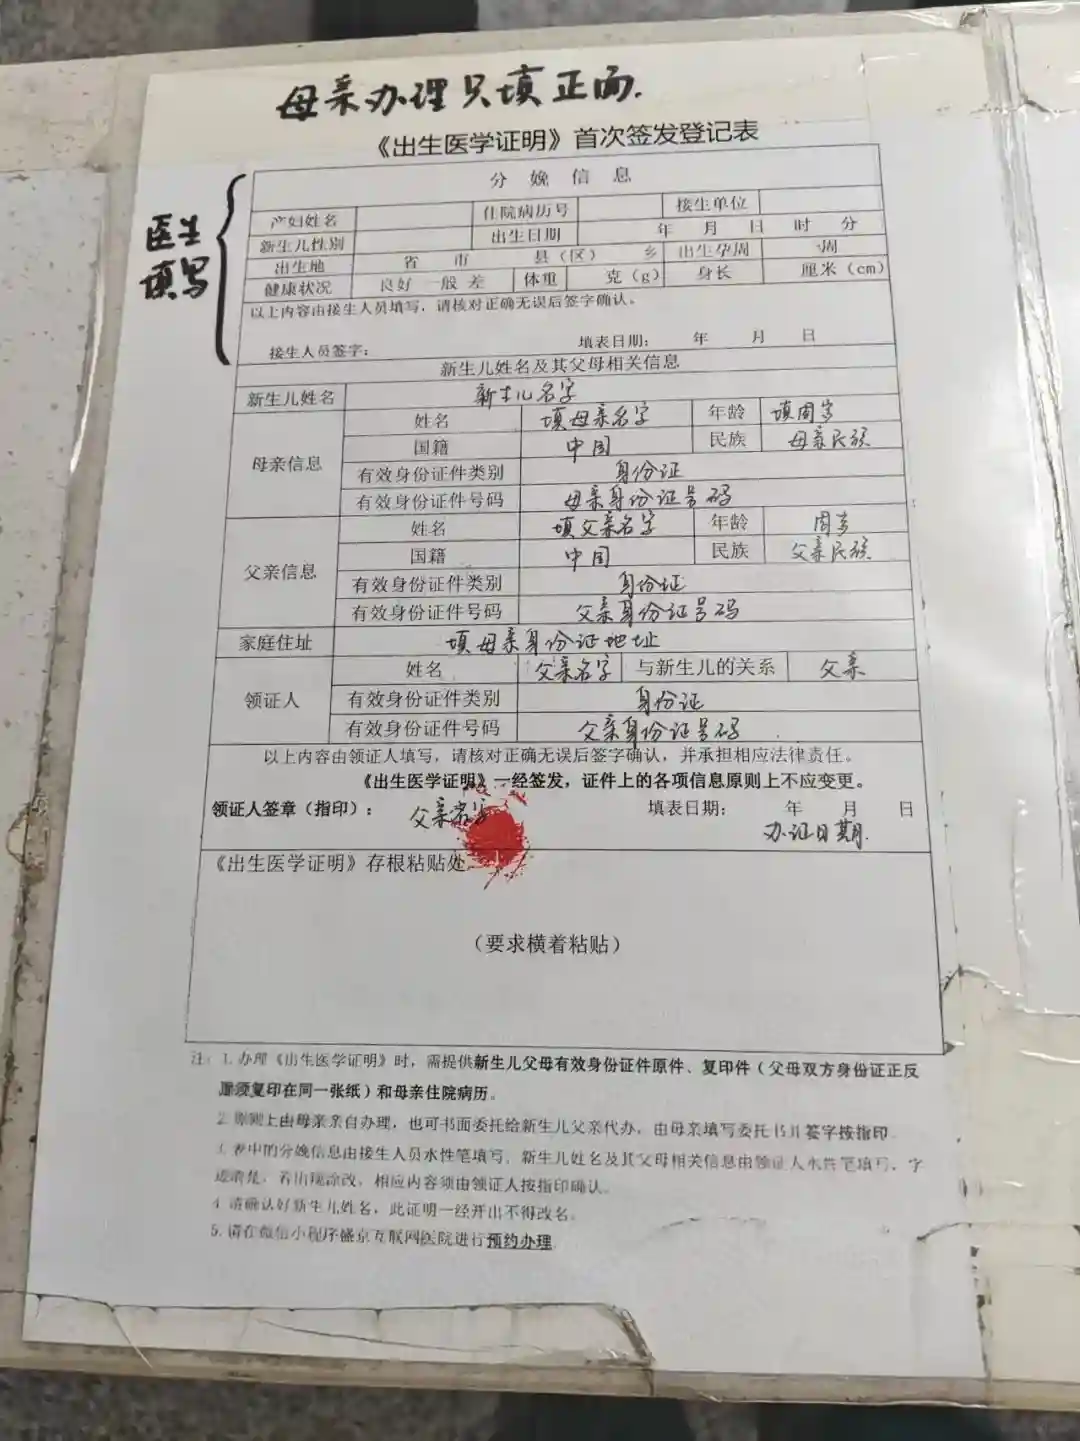 母亲办理只填正面.
《出生医学证明》首次签发登记表
医生
填写
分 娩 信 息
产妇姓名 住院病历号 接生单位
新生儿性别 出生日期 年 月 日 时 分
出生地 省 市 县（区） 乡 出生孕周 周
健康状况 良好 一般 差 体重 克（g） 身长 厘米（cm）
以上内容由接生人员填写，请核对正确无误后签字确认。
接生人员签字： 填表日期： 年 月 日
新生儿姓名及其父母相关信息
新生儿姓名 新生儿名字
母亲信息 姓名 填母亲名字 年龄 填周岁
国籍 中国 民族 母亲民族
有效身份证件类别 身份证
有效身份证件号码 母亲身份证号码
父亲信息 姓名 填父亲名字 年龄 周岁
国籍 中国 民族 父亲民族
有效身份证件类别 身份证
有效身份证件号码 父亲身份证号码
家庭住址 填母亲身份证地址
领证人 姓名 父亲名字 与新生儿的关系 父亲
有效身份证件类别 身份证
有效身份证件号码 父亲身份证号码
以上内容由领证人填写，请核对正确无误后签字确认，并承担相应法律责任。
《出生医学证明》一经签发，证件上的各项信息原则上不应变更。
领证人签章（指印）： 父亲名字 填表日期： 年 月 日
办证日期.
《出生医学证明》存根粘贴处
（要求横着粘贴）
注：1. 办理《出生医学证明》时，需提供新生儿父母有效身份证件原件、复印件（父母双方身份证正反
面须复印在同一张纸）和母亲住院病历。
2. 原则上由母亲亲自办理，也可书面委托给新生儿父亲代办，由母亲填写委托书并签字按指印
3. 表中的分娩信息由接生人员水性笔填写，新生儿姓名及其父母相关信息由领证人水性笔填写，字
迹清楚，若出现涂改，相应内容须由领证人按指印确认。
4. 请确认好新生儿姓名，此证明一经开出不得改名。
5. 请在微信小程序盛京互联网医院进行预约办理